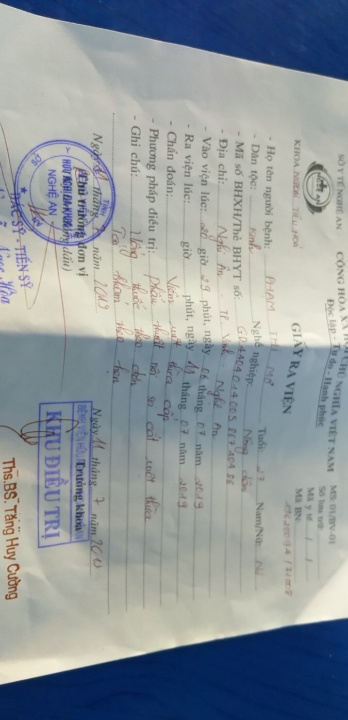 SỞ Y TẾ NGHỆ AN
CỘNG HÒA XÃ HỘI CHỦ NGHĨA VIỆT NAM
MS: 01/BV-01
Độc lập - Tự do - Hạnh phúc
Số lưu trữ
Mã y tế / /
NGHỆ AN
Mã BN:
KHOA NGOẠI TIÊU HOÁ
GIẤY RA VIỆN
- Họ tên người bệnh: PHẠM THỊ MỢ Tuổi: 27 Nam/Nữ: Nữ
- Dân tộc: Kinh Nghề nghiệp: Nông dân
- Mã số BHXH/Thẻ BHYT số: GD 4404014005 887 404 86
- Địa chỉ: Nghi Ân - TP. Vinh - Nghệ An
- Vào viện lúc: 20 giờ 29 phút, ngày 06 tháng 07 năm 2019
- Ra viện lúc: giờ phút, ngày 11 tháng 07 năm 2019
- Chẩn đoán: Viêm ruột thừa cấp
- Phương pháp điều trị: phẫu thuật nội soi cắt ruột thừa
- Ghi chú: Uống thuốc theo đơn
Tái khám theo hẹn
Ngày 11 tháng 7 năm 2019
Ngày 11 tháng 7 năm 200
Thủ trưởng đơn vị
Trưởng khoa
HỮU NGHỊ ĐA KHOA
NGHỆ AN
KHU ĐIỀU TRỊ
BÁC SỸ - TIẾN SỸ
Ths.BS. Tăng Huy Cường